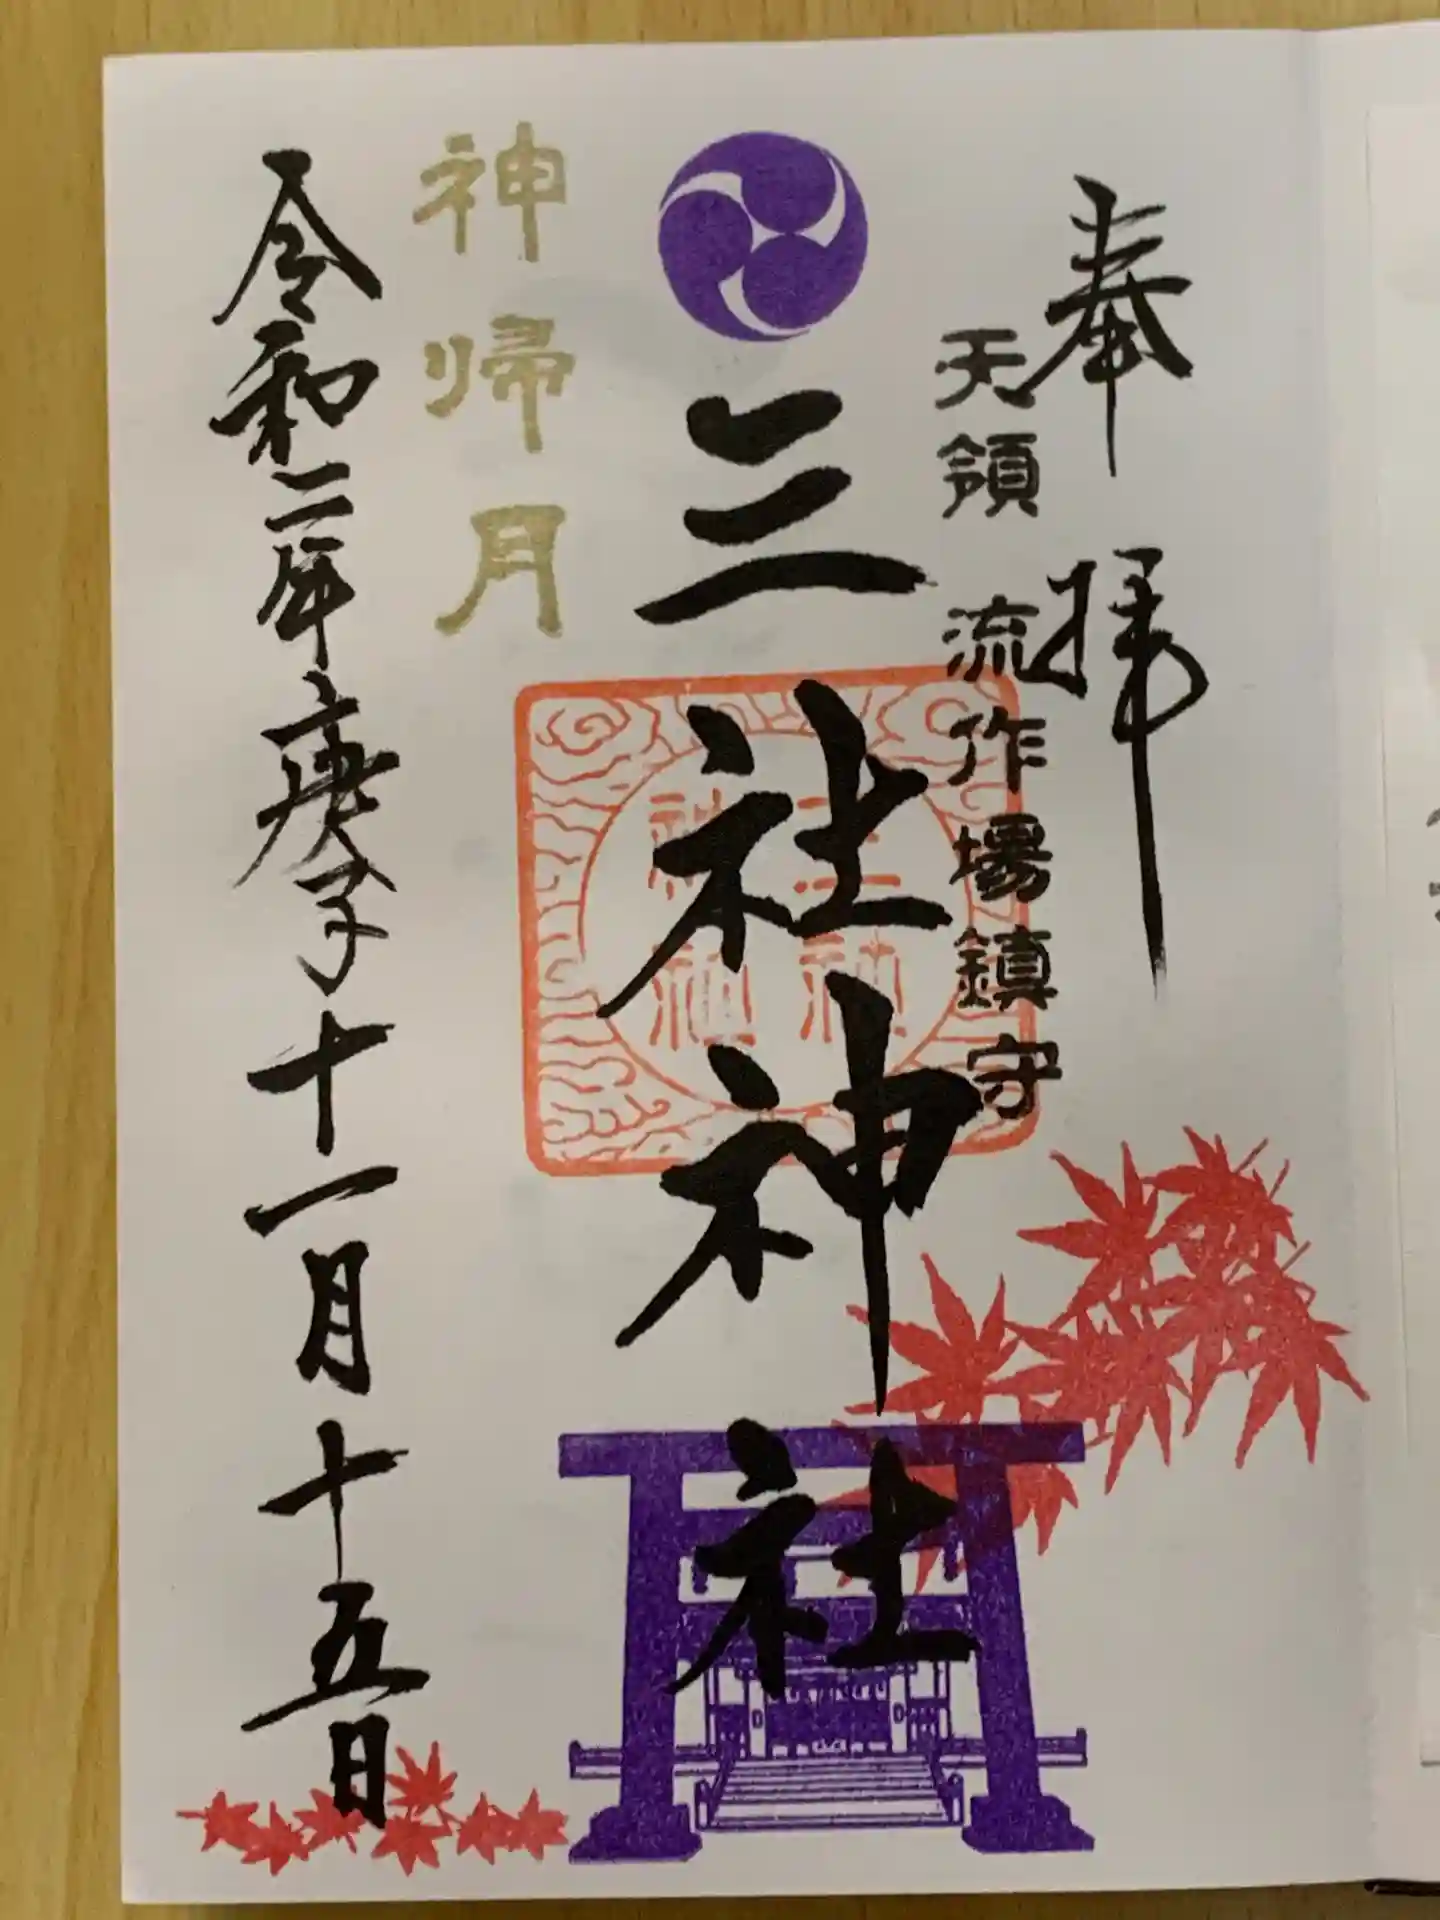 奉拝
天領 流作場鎮守
三社神社
三社
神社
神帰月
令和二年庚子十一月十五日